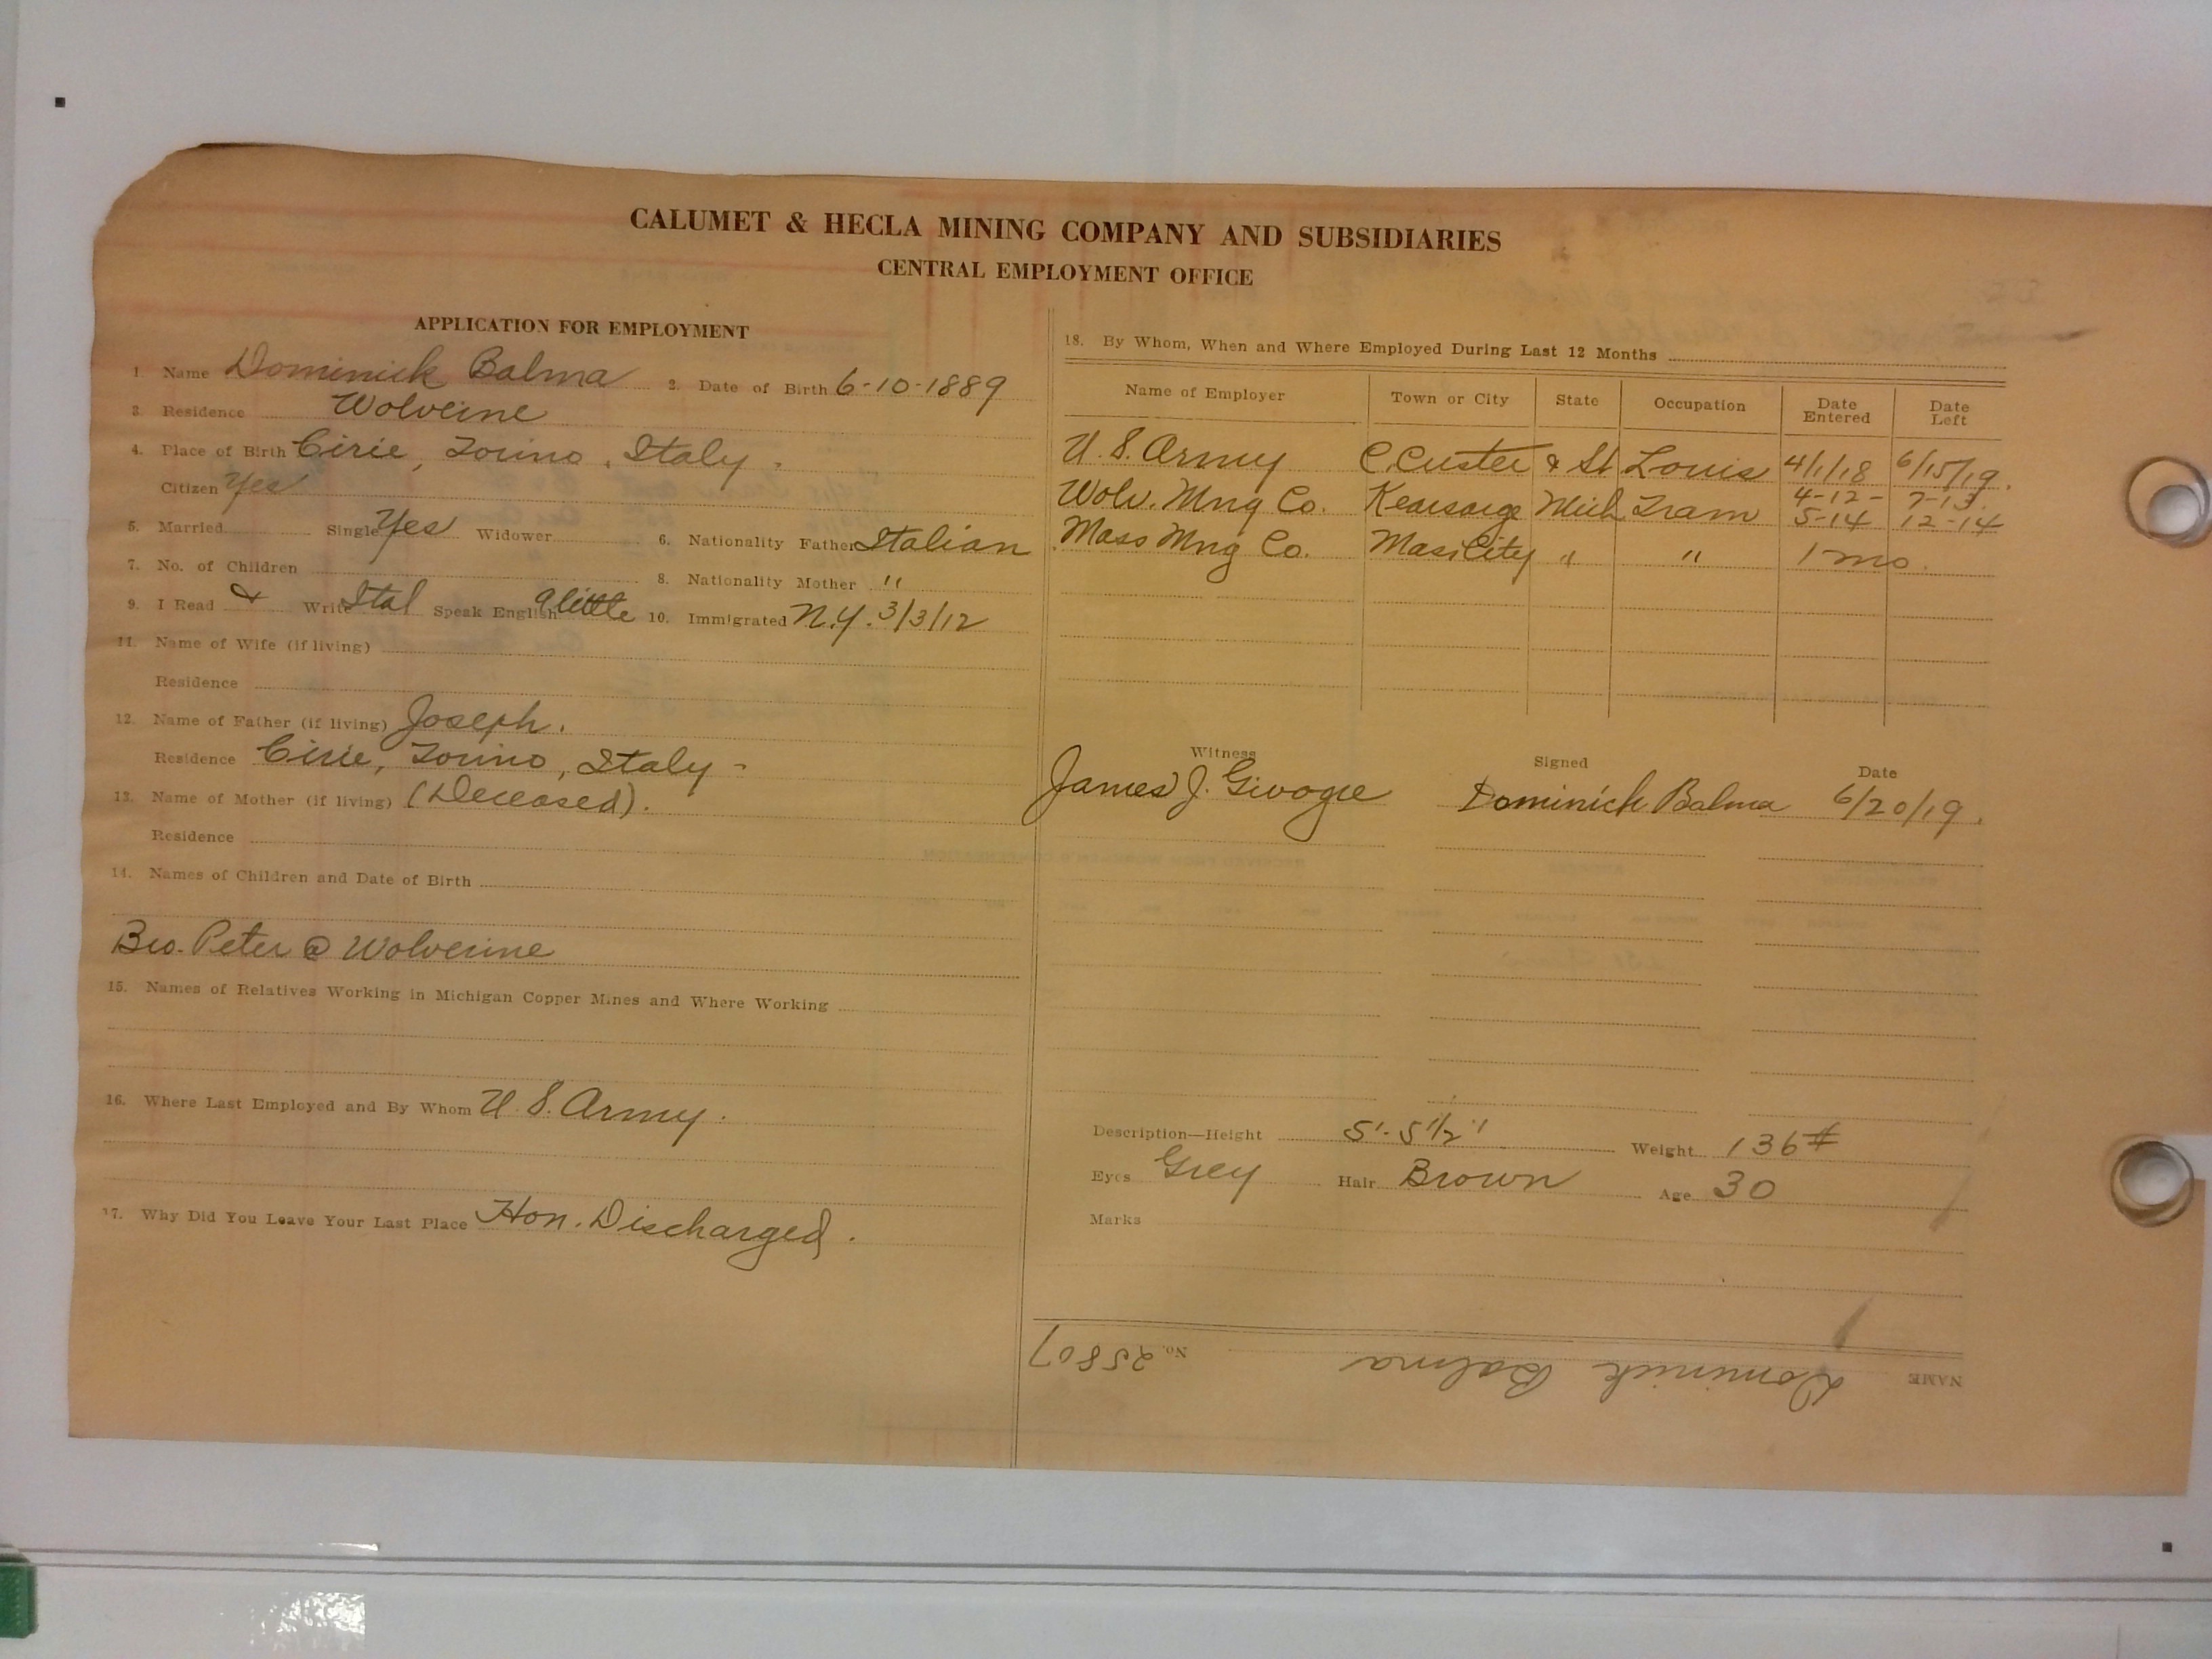 CALUMET & HECLA MINING COMPANY AND SUBSIDIARIES
CENTRAL EMPLOYMENT OFFICE
APPLICATION FOR EMPLOYMENT
1. Name Dominick Balma 2. Date of Birth 6-10-1889
3. Residence Wolverine
4. Place of Birth Cirie, Torino, Italy.
Citizen Yes
5. Married Single Yes Widower 6. Nationality Father Italian
7. No. of Children 8. Nationality Mother "
9. I Read & Write Ital Speak English a little 10. Immigrated N.Y. 3/3/12
11. Name of Wife (if living)
Residence
12. Name of Father (if living) Joseph.
Residence Cirie, Torino, Italy -
13. Name of Mother (if living) (Deceased).
Residence
14. Names of Children and Date of Birth
Bro. Peter @ Wolverine
15. Names of Relatives Working in Michigan Copper Mines and Where Working
16. Where Last Employed and By Whom U.S. Army.
17. Why Did You Leave Your Last Place Hon. Discharged.
18. By Whom, When and Where Employed During Last 12 Months
Name of Employer Town or City State Occupation Date Entered Date Left
U.S. Army C. Custer & St Louis 4/1/18 6/15/19.
Wolv. Mng Co. Kearsarge Mich Tram 4-12- 7-13.
5-14 12-14
Mass Mng Co. Mass City " " 1 mo.
Witness Signed Date
James J. Dominick Balma 6/20/19.
Description—Height 5'-5 1/2" Weight 136#
Eyes Grey Hair Brown Age 30
Marks
NAME Dominick Balma No. 25807